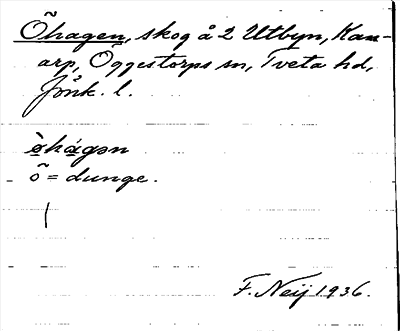 Õhagen, skog å 2 Utbyn, Kam-
arp, Öggestorps sn, Tveta hd,
Jönk. l.
õ = dunge.
F. Neij 1936.